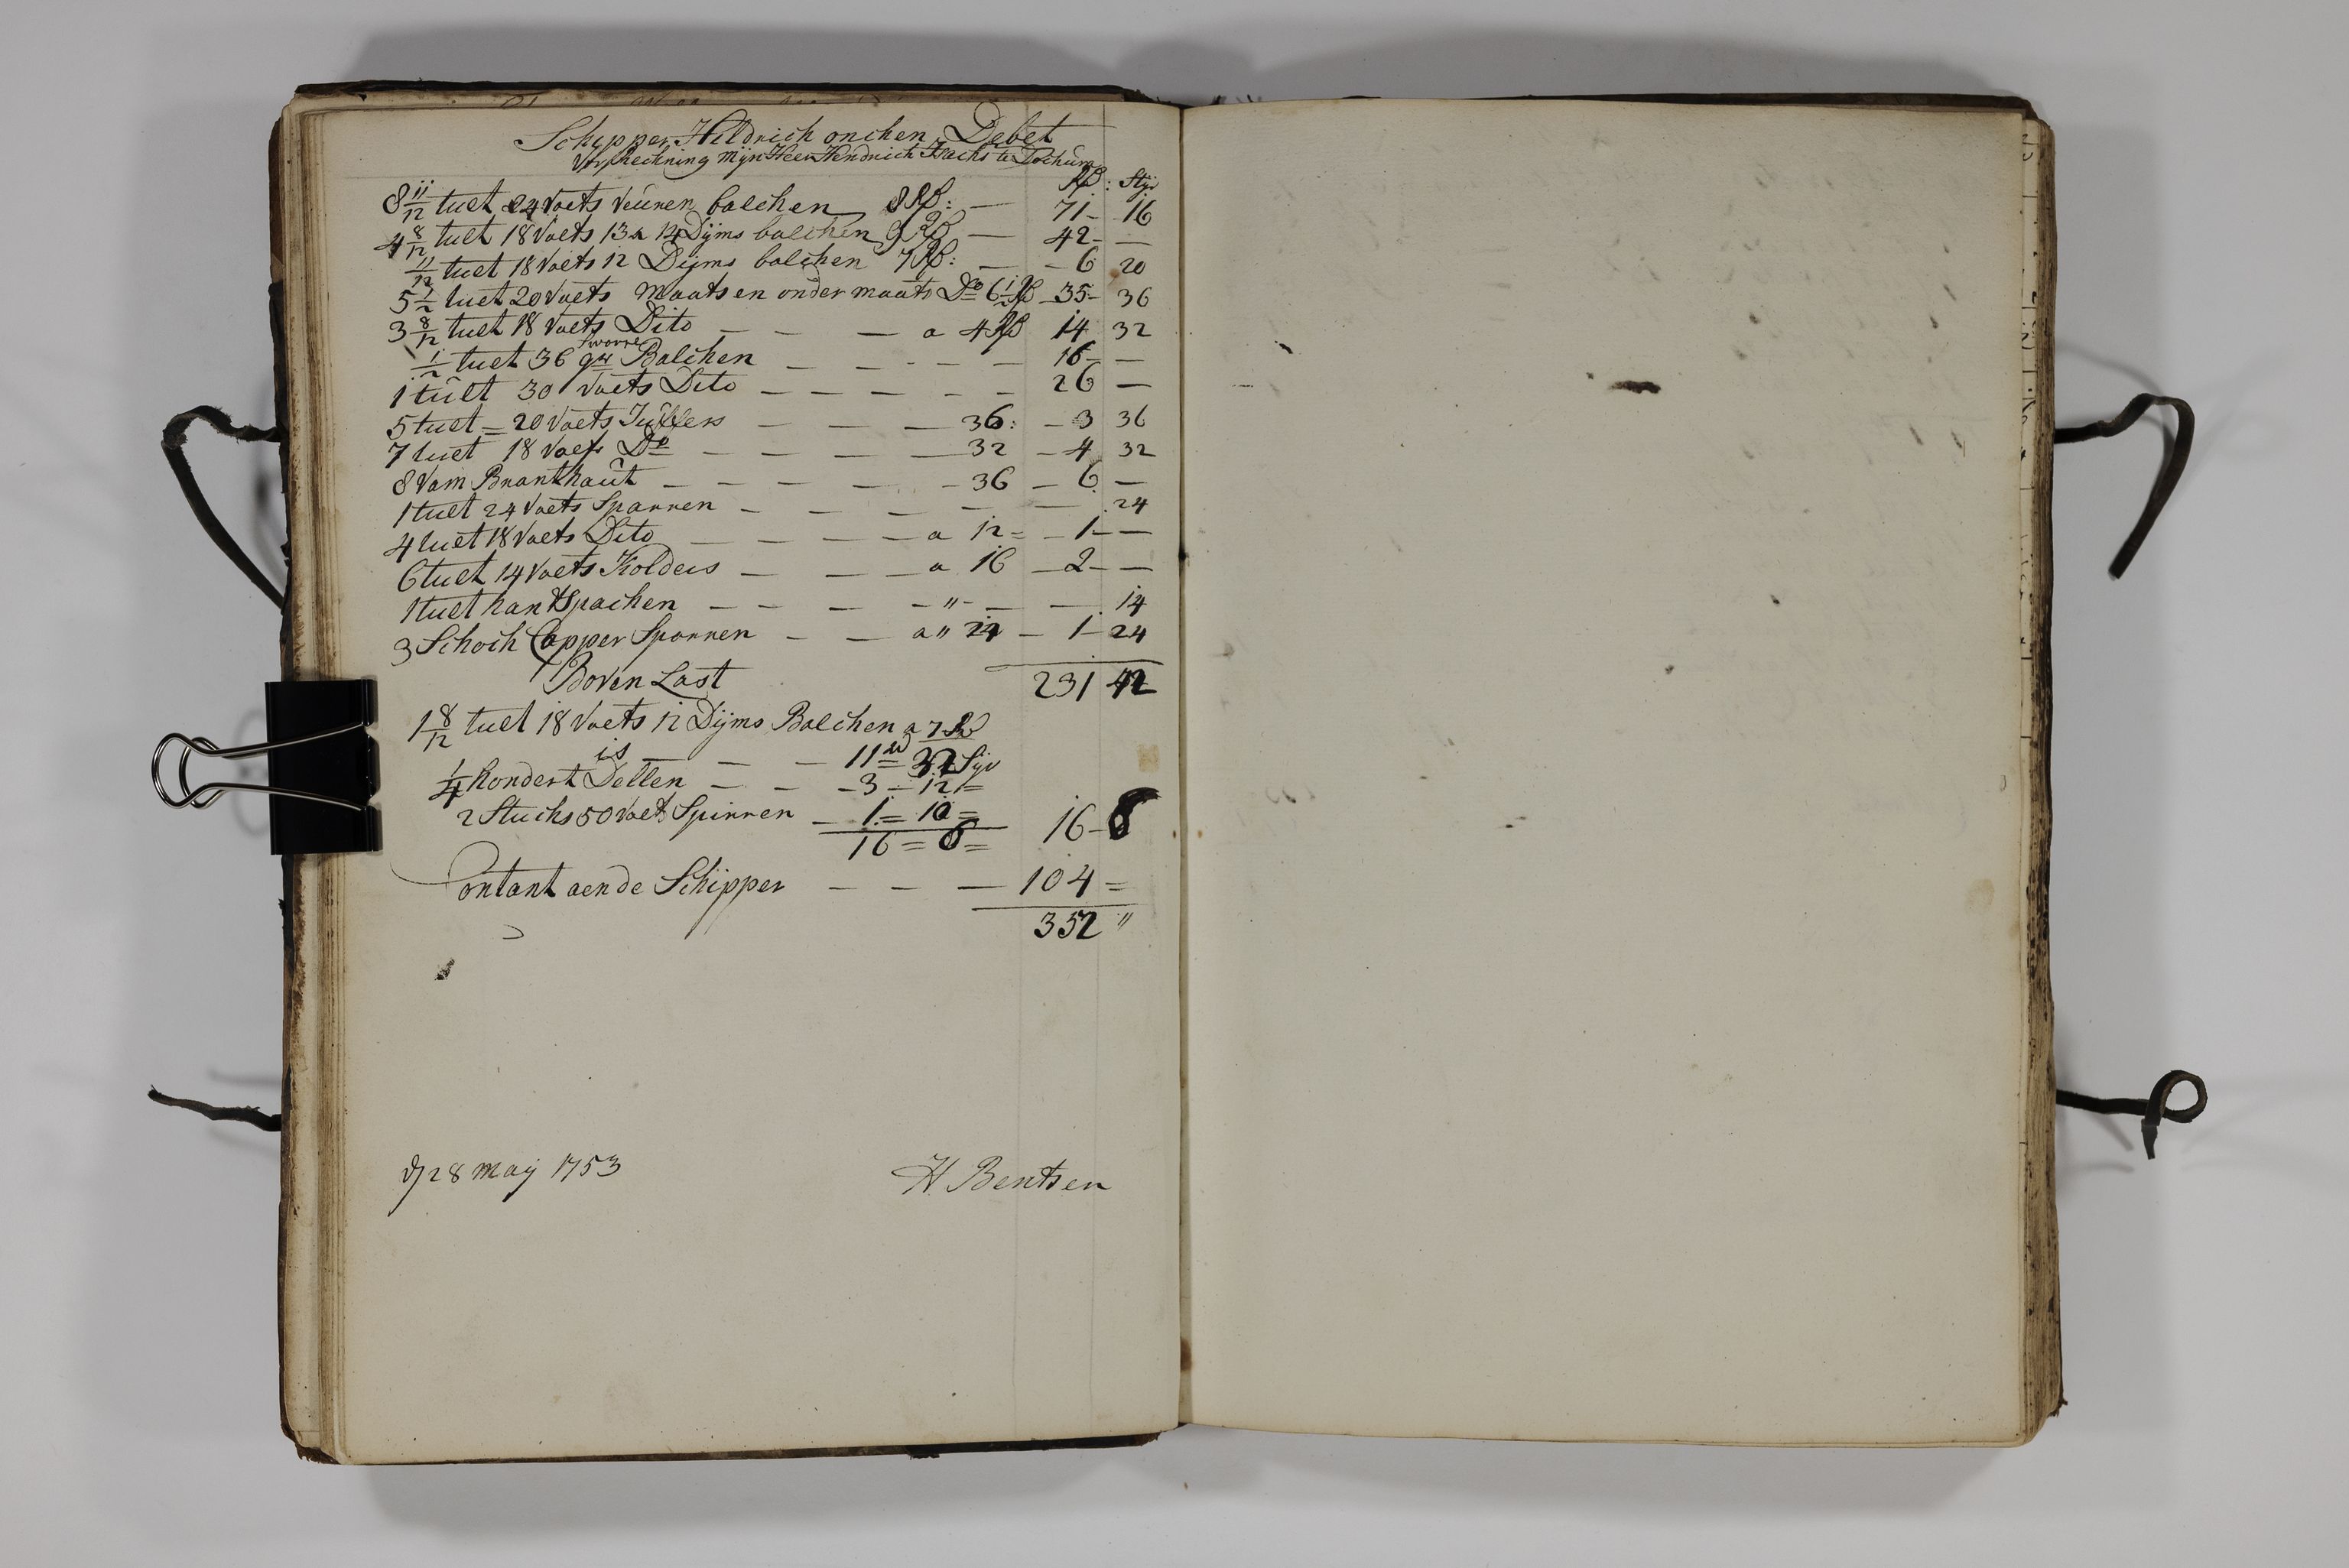 Schipper Hildrich onchen Debet
Vor Rechning Mijn Heer Hendrich Isachs te
Rd: Styv
8 11/12 tuet 24 Voets Veuren balchen 8 Rd: — 71 - 16
4 8/12 tuet 18 Voets 13 a 14 Dijms balchen 9 Rd — 42 - —
11/12 tuet 18 Voets 12 Dijms balchen 7 Rd: — - 6 20
5 1/2 tuet 20 Voets Maats en onder maats Do 6 1/2 Rd - 35 - 36
3 8/12 tuet 18 Voets Dito — — — a 4 Rd 14 32
1/2 tuet 36 Balchen — — — — — 16 - —
1 tuet 30 Voets Dito — — — — — 26 —
5 tuet = 20 Voets Juffers — — — 36: - 3 36
7 tuet 18 Voets Do — — — — 32 - 4 32
8 Vam Branthaut — — — — - 36 - 6 —
1 tuet 24 Voets Sparren — — — — — — 24
4 tuet 18 Voets Dito — — — — a 12 = - 1 - —
6 tuet 14 Voets Kolders — — — a 16 - 2 - —
1 tuet hantspachen — — — - " - — — 14
3 Schoch Capper Sparren — — a " 24 - 1 - 24
231 42
Boven Last
1 8/12 tuet 18 Voets 12 Dijms Balchen a 7 Rd
is — — - 11 Rd = 32 Sijv
1/4 hondert Dellen — — - 3 - 12 =
2 Stuchs 50 Voet Spirren - 1 = 10 =
16 = 6 = 16 - 6
Contant aen de Schipper — — — 104 =
352 "
d 28 Maij 1753 H Bentsen